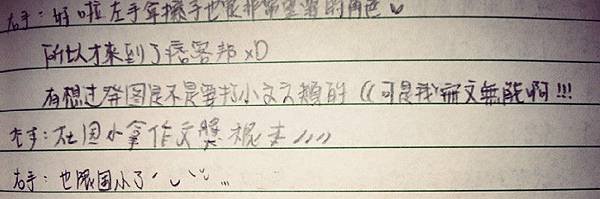 右手:好啦左手拿搖手也是非常重要的角色
所以才來到了痞客邦 xD
有想过發图是不是要打小文文類的((可是我寫文無能啊!!!
左手:在国小拿作文獎視去 ////
右手:也限国小了